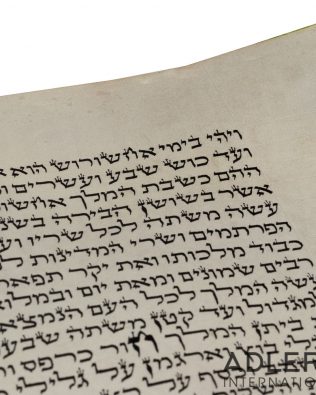 ויהי בימי אחשורוש הוא
ועד כוש שבע ועשרים
ההם כשבת המלך
אשר בשושן הבירה
עשה משתה לכל שריו
הפרתמים ושרי המדינות
כבוד מלכותו ואת יקר
רבים שמונים ומאת יום
עשה המלך לכל העם
למגדול ועד קטן משתה
ביתן המלך חור כרפס
וארגמן על גלילי
ADLER
INTERNATIO